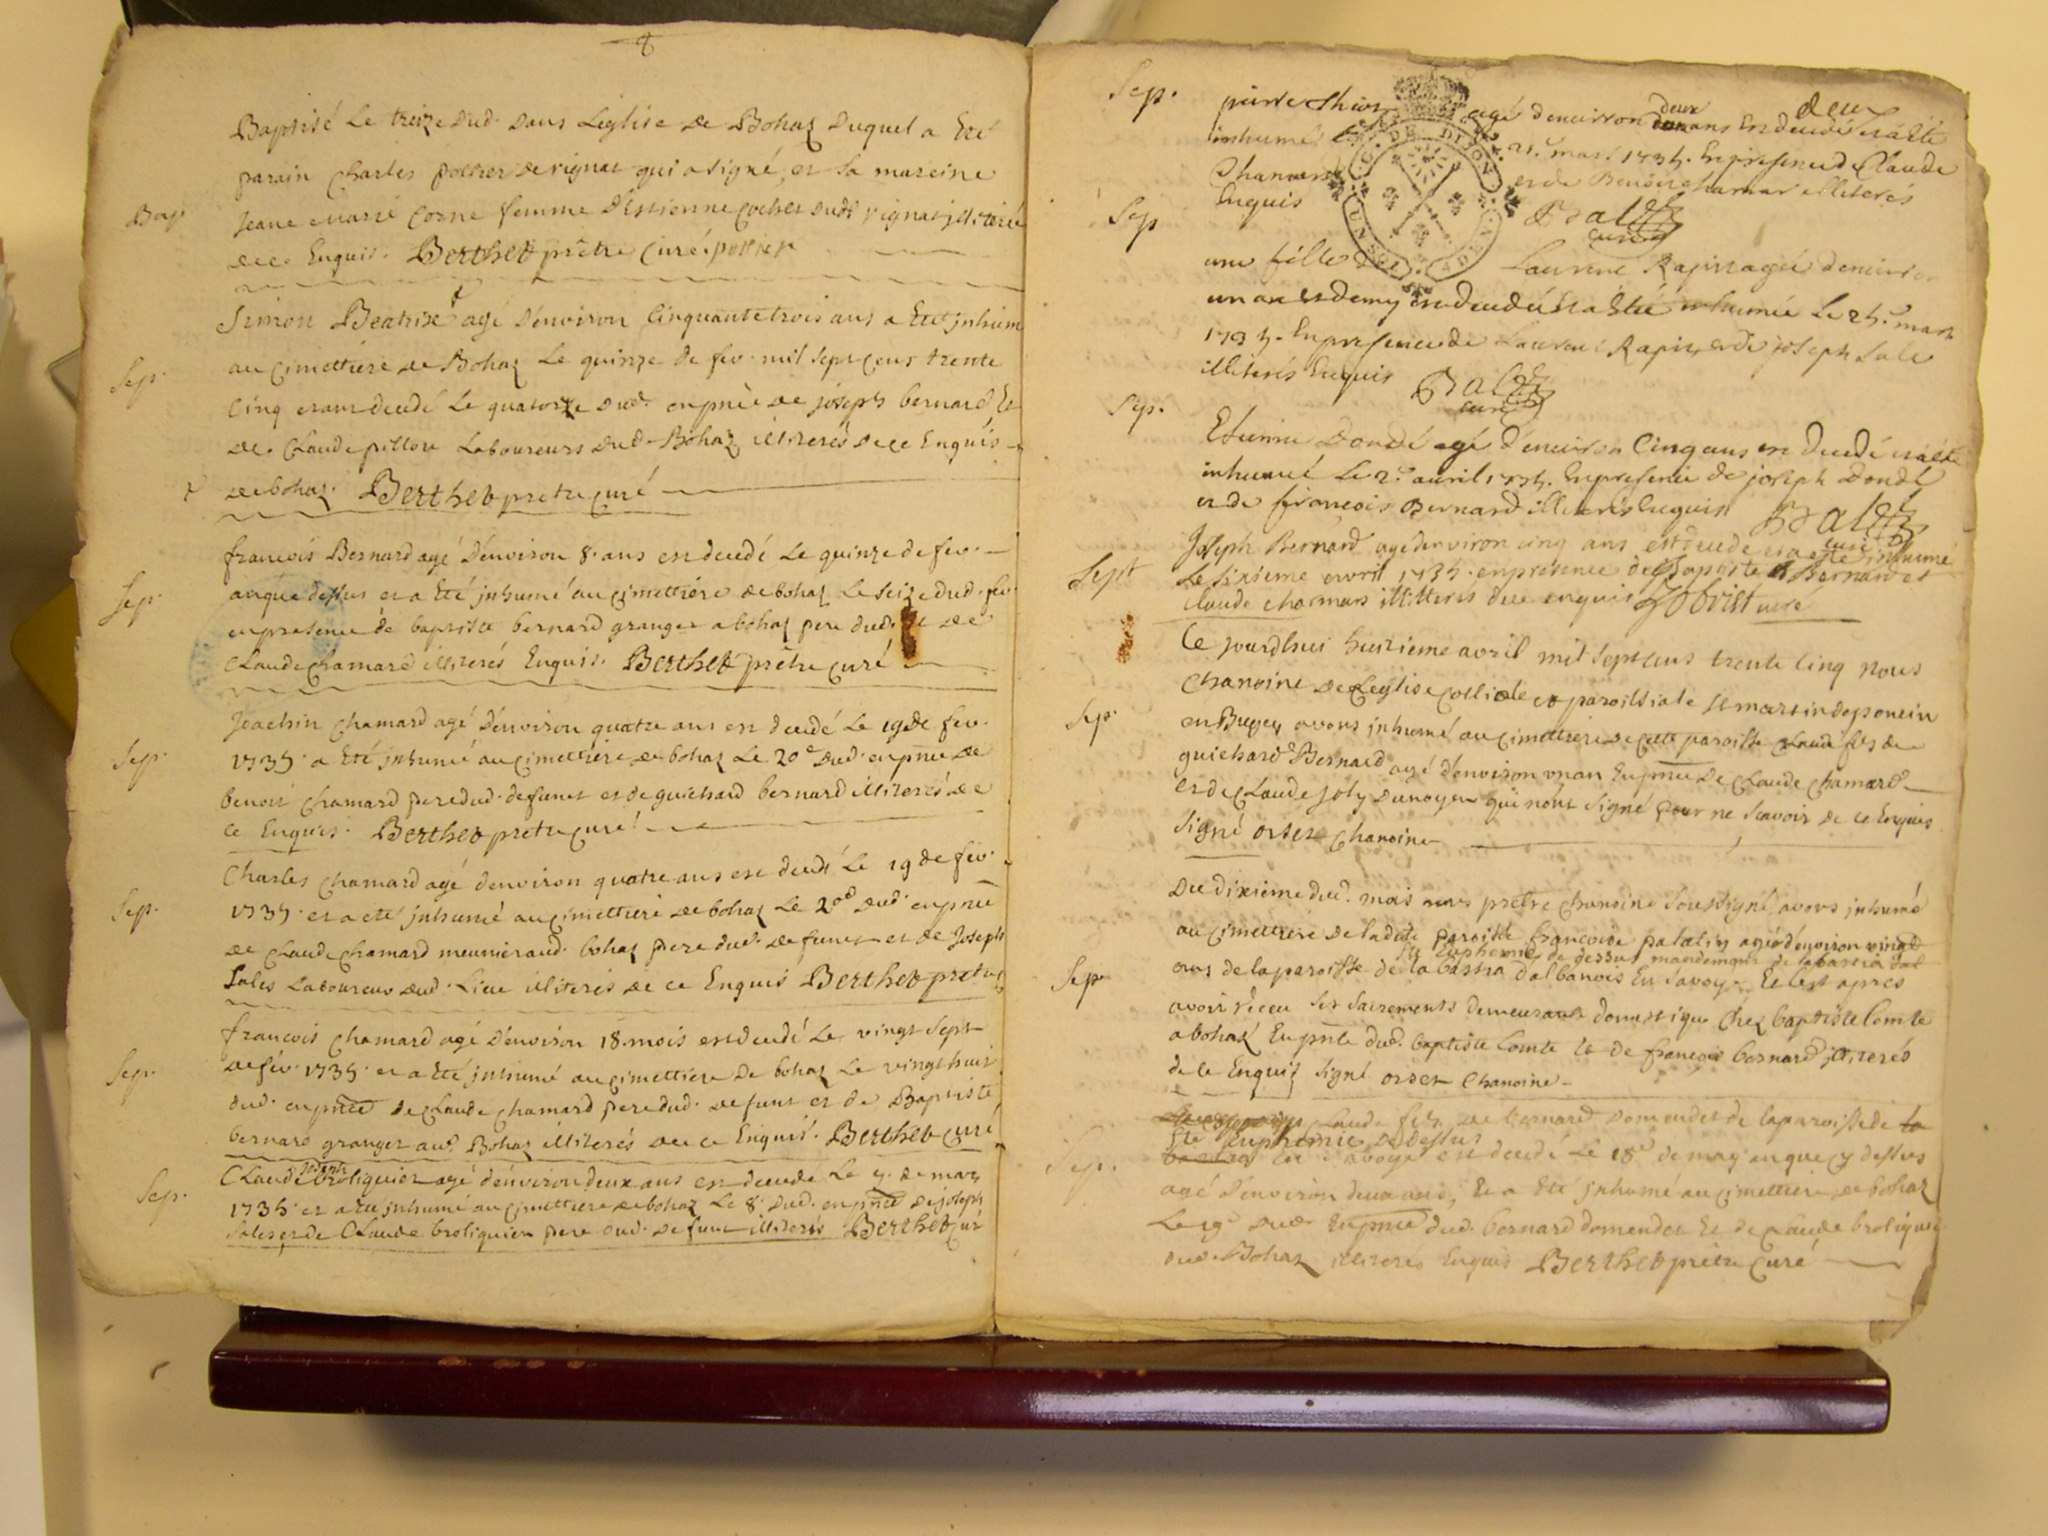 8
Baptisé Le treize dud. dans Leglise de Bohaz duquel a Eté
parain Charles pottier de rignat qui a signé, et la mareine
Bap
Jeane Marie Corne femme d'Estienne Cochet dudt rignat illiterée
de ce Enquis. Berthet prêtre Curé. pottier
Simon Beatrix agé d'environ Cinquante trois ans a Eté inhumé
Sep.
au Cimettiere de Bohaz Le quinze de fev. mil Sept Cens trente
Cinq etant decedé Le quatorze dud. en pnce de joseph bernard Et
de Claude pillon Laboureurs dud. Bohaz illiterés de ce Enquis
de bohaz. Berthet pretre curé
françois Bernard agé d'environ 8. ans est decedé Le quinze de fev.
Sep.
an que dessus et a Eté inhumé au Cimettiere de bohaz Le Seize dud. fev.
en presence de baptiste bernard granger a bohaz pere dud. de
Claude Chamard illiterés Enquis. Berthet prêtre curé
Joachin Chamard agé d'environ quatre ans est decedé Le 19 de fev.
Sep.
1735. a Eté inhumé au Cimettiere de bohaz Le 20e dud. en pnce de
benoit Chamard pere dud. defunct et de guichard bernard illiterés de
ce Enquis. Berthet pretre curé
Charles Chamard agé d'environ quatre ans est decedé Le 19 de fev.
Sep.
1735. et a eté inhumé au Cimettiere de bohaz Le 20e dud. en pnce
de Claude Chamard meunier aud. bohaz pere dud. defunct et de Joseph
Sales Laboureur dud. Lieu illiterés de ce Enquis Berthet pretre
françois Chamard agé d'environ 18. mois est decedé Le vingt Sept
Sep.
de fév. 1735. et a Eté inhumé au Cimettiere de bohaz Le vingt huit
dud. en pnce de Claude Chamard pere dud. defunt et de Baptiste
bernard granger aud. Bohaz illiterés de ce Enquis. Berthet curé
joseph
Claude broliquier agé d'environ deux ans est decedé Le 7. de mars
Sep.
1735. et a Eté inhumé au Cimettiere de bohaz Le 8. dud. en pnce de joseph
Sales et de Claude broliquier pere dud. defunt illiterés Berthet curé
Sep.
pierre agé d'environ deux ans est decedé et a été
deux
inhumé 21. mars 1735. En presence de Claude
Chamard et de Benoit Chamar illiterés
Enquis
curé
Sep
une fille Laurent Rapin agée d'environ
un an et demy est decedée et a Eté inhumée Le 25. mars
1735. En presence de Laurent Rapin, et de joseph Sale
illiterés Enquis
curé
Sep.
Etienne Dondé agé d'environ Cinq ans est decedé et a été
inhumé Le 2. avril 1735. En presence de joseph Dondé
et de françois Bernard illiterés Enquis
curé
Joseph Bernard agé d'environ cinq ans est decedé et a esté inhumé
Sept
Le sixieme avril 1735. en presence de Baptiste Bernard et
claude charmars illitteres de ce enquis curé
Ce jourdhui huitieme avril mil Sept cens trente Cinq nous
Chanoine de Leglise Colliale et paroissiale St martin de poncin
Sep.
en Bugey avons inhumé au Cimettiere de cette paroisse Claude fils de
guichard Bernard agé d'environ un an En pnce de Claude Chamard
et de Claude joly qui n'ont Signé pour ne Scavoir de ce Enquis
Signé orset Chanoine
Du dixieme dud. mois nous prêtre Chanoine Soussigné avons inhumé
au Cimettiere de ladite paroisse françoise palatin agée d'environ vingt
Ste Euphemie de dessus mandement de
Sep
ans de la paroisse de la d'albanois En Savoye. Et est apres
avoir receu Ses Sacrements demeurant domestique Chez baptiste Comte
a bohaz En pnce dud. baptiste Comte Et de françois bernard illiterés
de ce Enquis Signé orset Chanoine
Claude fils de bernard domendet de la paroisse de
Ste Euphemie de dessus
Sep.
En Savoye est decedé Le 18e de may an que cy dessus
agé d'environ deux ans, Et a Eté inhumé au Cimettiere de bohaz
Le 19e dud. En pnce dud. bernard domendet Et de Claude broliquier
dud. Bohaz illiterés Enquis Berthet prêtre Curé